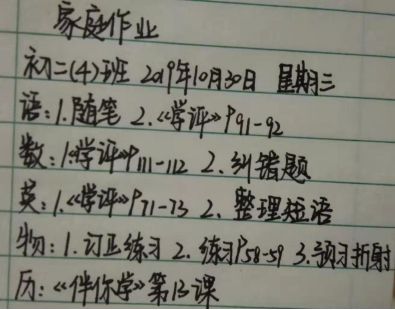 家庭作业
初二(4)班 2019年10月30日 星期三
语:1.随笔 2.《学评》P91-92
数:1.《学评》P111-112 2.纠错题
英:1.《学评》P71-73 2.整理短语
物:1.订正练习 2.练习P58-59 3.预习折射
历:《伴你学》第13课